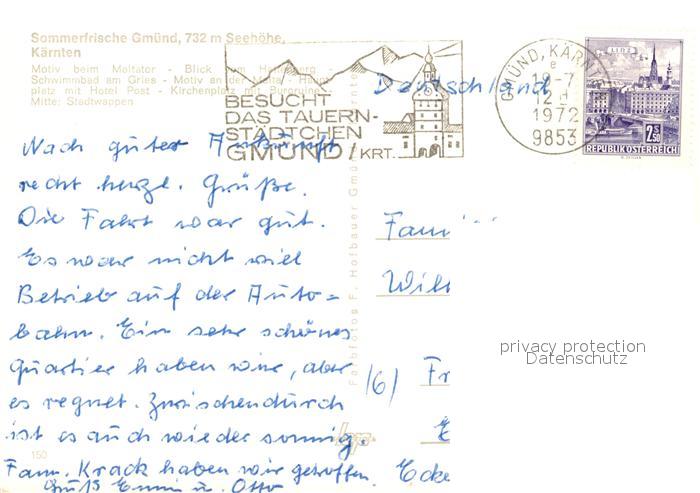 Sommerfrische Gmünd, 732 m Seehöhe,
Kärnten
Motiv beim Maltator - Blick
Schwimmbad am Gries - Motiv an der Malta - Haupt-
platz mit Hotel Post - Kirchenplatz mit Burgruine
Mitte: Stadtwappen
BESUCHT
DAS TAUERN-
STÄDTCHEN
GMÜND/KRT.
GMÜND, KÄRNT
e
12 H
1972
9853
LINZ
2.50
REPUBLIK ÖSTERREICH
Deutschland
Nach guter Ankunft
recht herzl. Grüße.
Die Fahrt war gut.
Es war nicht viel
Betrieb auf der Auto=
bahn. Ein sehr schönes
Quartier haben wir, aber
es regnet. Zwischendurch
ist es auch wieder sonnig.
Fam. Krack haben wir getroffen.
Gruß Emmi u. Otto
Fam
Wil
(6) Fr
E
Ecke
Farbfotos F. Hofbauer Gmünd Kärnten
150
privacy protection
Datenschutz